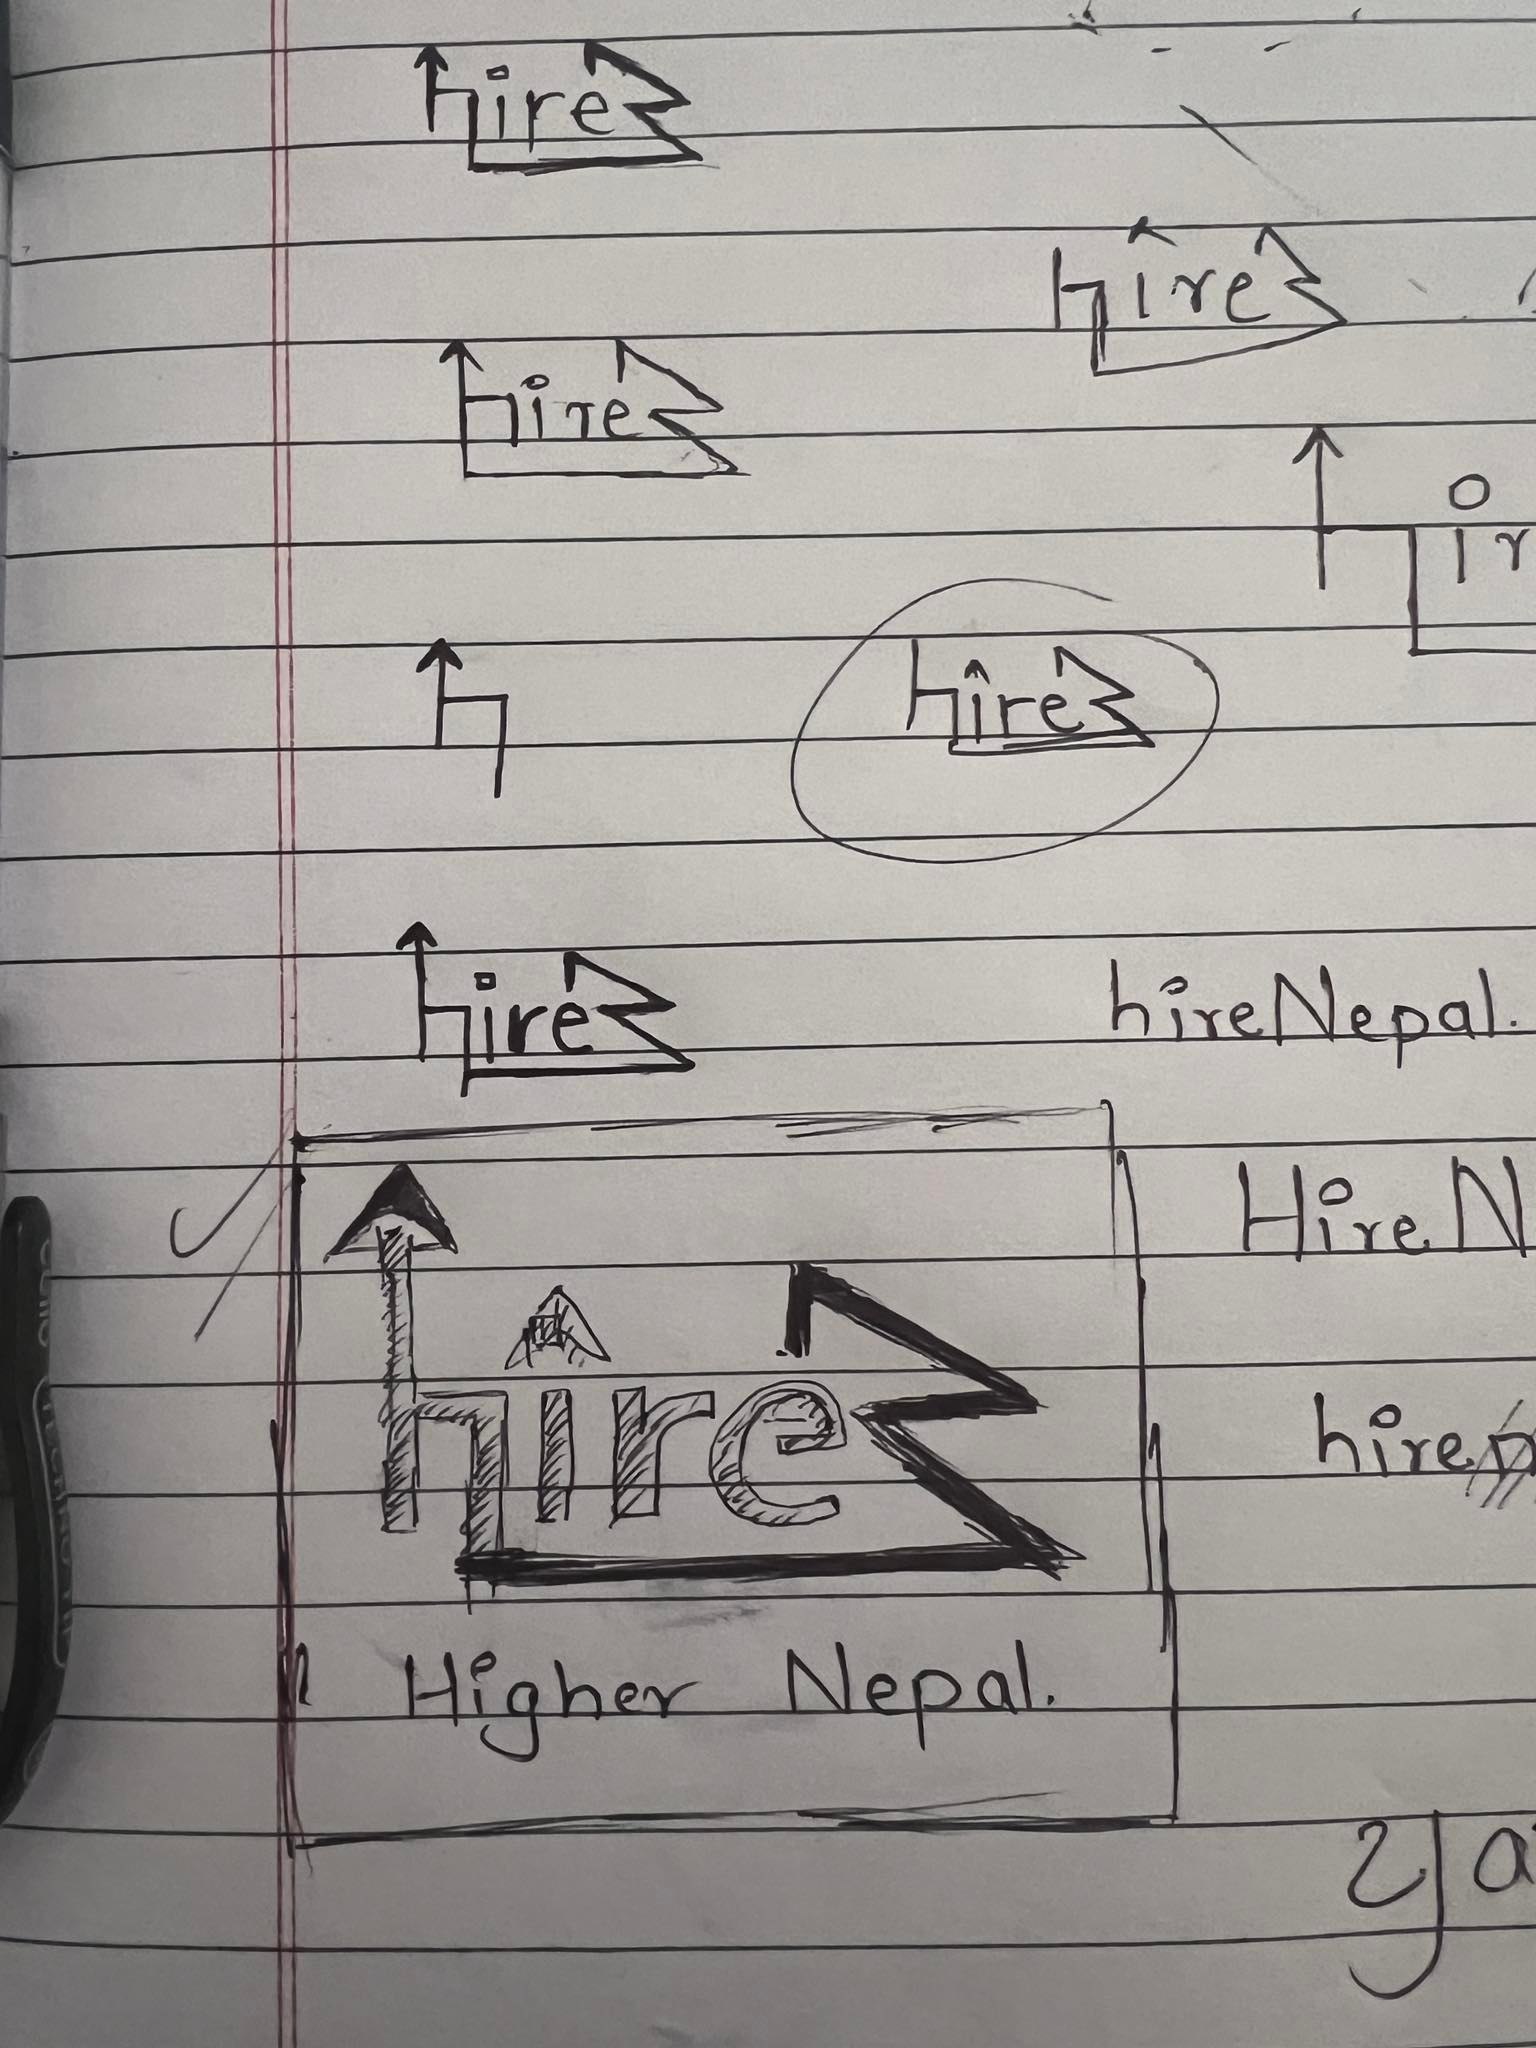 hire
hire
hire
ir
h
hire
hire
hireNepal.
Hire N
hire
hire
Higher Nepal.
ya